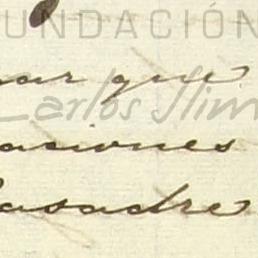 FUNDACIÓN
nar que
Carlos Slim
aciones
Casadre